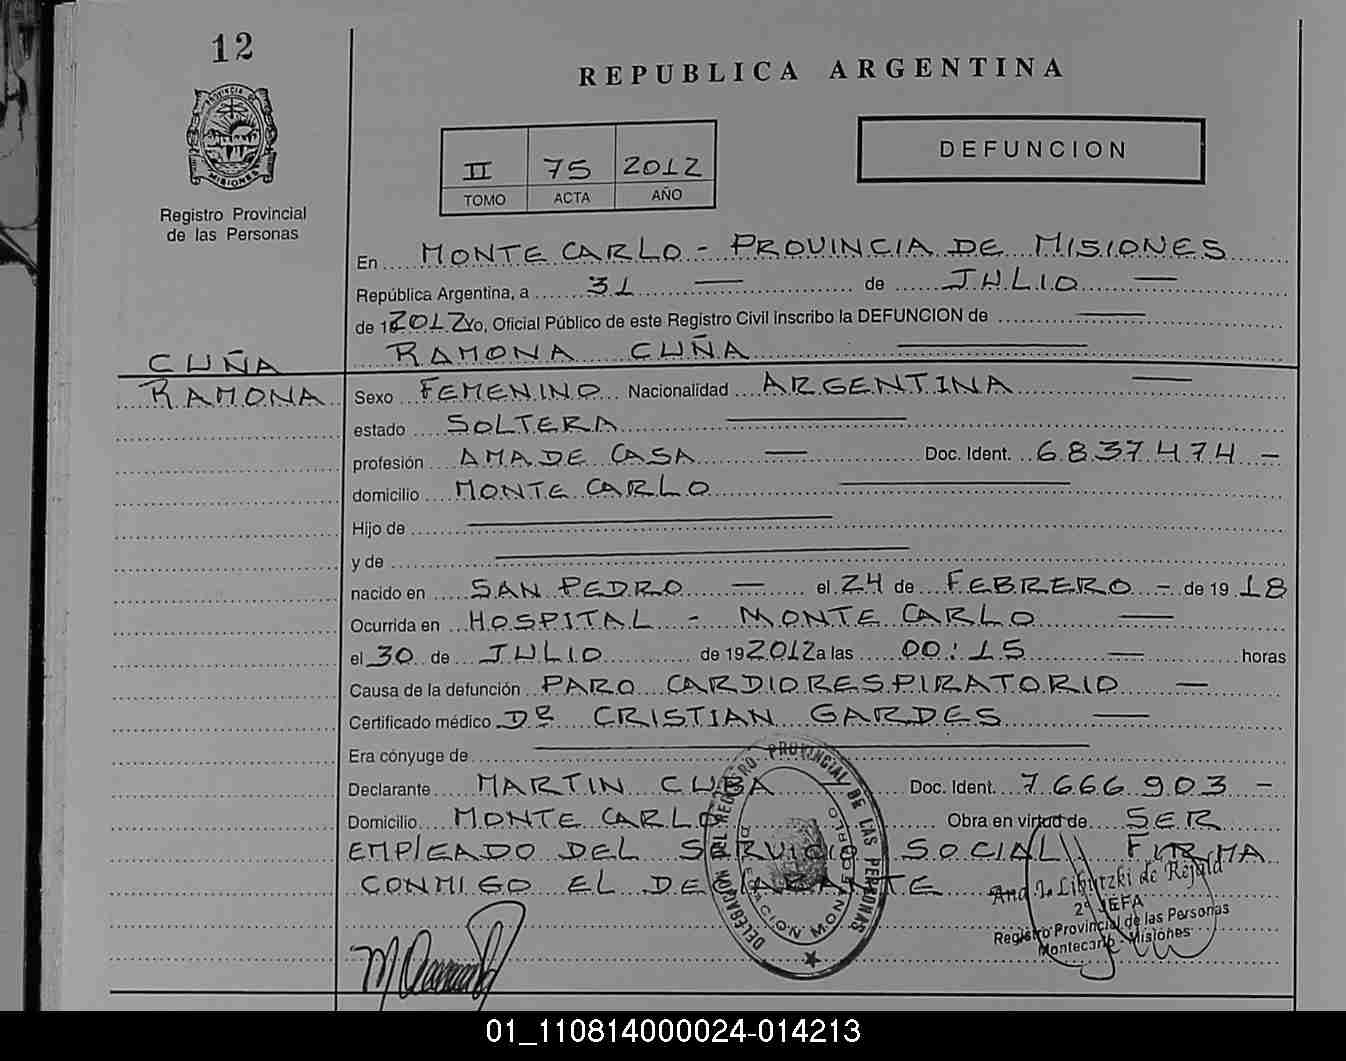 12
REPUBLICA ARGENTINA
PROVINCIA DE
MISIONES
Registro Provincial
de las Personas
II 75 2012
TOMO ACTA AÑO
DEFUNCION
En MONTE CARLO - PROVINCIA DE MISIONES
República Argentina, a 31 — de JULIO —
de 2012 Yo, Oficial Público de este Registro Civil inscribo la DEFUNCION de —
RAMONA CUÑA —
CUÑA
RAMONA
Sexo FEMENINO Nacionalidad ARGENTINA —
estado SOLTERA —
profesión AMA DE CASA — Doc. Ident. 6837474 -
domicilio MONTE CARLO —
Hijo de —
y de —
nacido en SAN PEDRO — el 24 de FEBRERO - de 19 18
Ocurrida en HOSPITAL - MONTE CARLO —
el 30 de JULIO de 19 2012 a las 00:15 — horas
Causa de la defunción PARO CARDIORESPIRATORIO —
Certificado médico DR CRISTIAN GARDES —
Era cónyuge de —
Declarante MARTIN Doc. Ident. 7666903 -
Domicilio MONTE CARLO Obra en virtud de SER
EMPLEADO DEL SERVICIO SOCIAL FIRMA
CONMIGO EL DECLARANTE
DELEGACION DEL REGISTRO PROVINCIAL DE LAS PERSONAS
MONTECARLO
Ana I. de
2º JEFA
Registro Provincial de las Personas
Montecarlo - Misiones
01_110814000024-014213